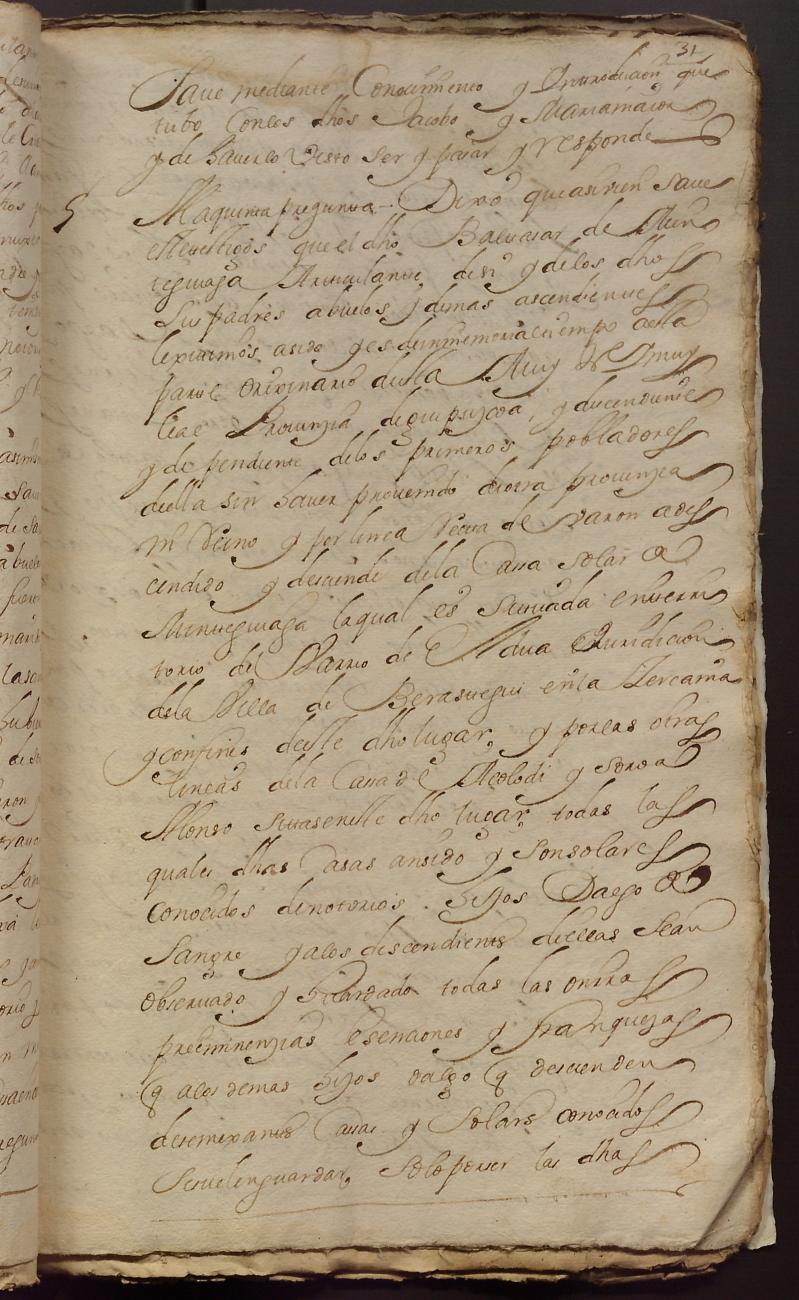 31
Save mediante Conocimiento y Introducion que
tubo Conlos dhos Jacobo y Mariamaior
y de haverlo Visto ser y pasar y responde
5
Alaquinta pregunta. Dixo que asivien save
el testigo que el dho Baltasar de
teguiaga Articulante, de si y delos dhos
sus padres abuelos y demas ascendientes
lexitimos asido y es de inmemorial tiempo aesta
parte orixinario desta Muy N y muy
leal Provinzia de guipuzcoa, y descendiente
y dependiente delos primeros pobladores
della sin haver provenido de otra provinzia
ni Reino y por linea Recta de varon a des
cendido y desciende dela Cassa solar de
laqual es situada en terri
torio del Barrio de Aldua Juridicion
dela Villa de Berastegui en la Zercania
y confines deste dho lugar, y por las otras
lineas dela Cassa de Acolodi y
Alonso sitas en este dho lugar, todas las
quales dhas Casas an sido y son solares
conocidos de notorios hijos Dalgo de
Sangre y alos descendientes de ellas sean
observado y Guardado todas las onrras
preeminenzias esenciones y franquezas
q alos demas hijos dalgo q descienden
de semexantes Casas y Solares conocidos
se suelen guardar, solo por ser las dhas